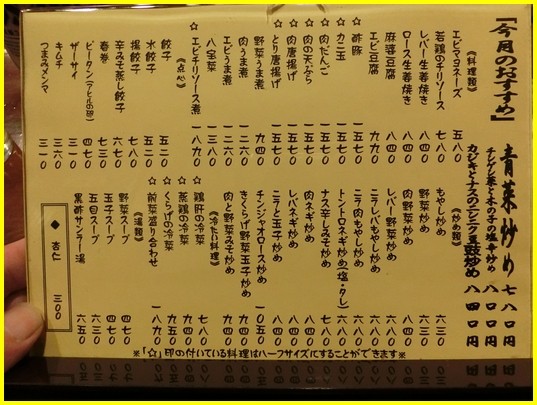 「今月のおすすめ」
青菜炒め 七八〇円
チンゲン菜と木の子の塩辛炒め 八〇〇円
カジキとナスのニンニク豆鼓炒め 八四〇円
《料理類》
エビマヨネーズ 五八〇
若鶏のチリソース 七八〇
レバー生姜焼き 八四〇
ロース生姜焼き 八四〇
麻婆豆腐 八四〇
エビ豆腐 九九〇
☆酢豚 一五七〇
☆カニ玉 一五七〇
☆肉だんご 一五七〇
☆肉の天ぷら 一五七〇
☆肉唐揚げ 一五七〇
☆とり唐揚げ 一五七〇
野菜うま煮 九四〇
肉うま煮
エビうま煮
八宝菜
☆エビチリソース煮 一八九〇
《点心》
餃子 五二〇
水餃子 五二〇
揚餃子 七八〇
辛みそ蒸し餃子 六七〇
春巻 七三〇
ピータン(アヒルの卵) 四七〇
ザーサイ 三一〇
キムチ 三六〇
つまみメンマ 三一〇
《炒め類》
もやし炒め 六三〇
野菜炒め 六三〇
肉野菜炒め 八四〇
レバー野菜炒め
ニラレバもやし炒め
ニラ肉もやし炒め
トントロネギ炒め(塩・タレ)
ナス辛しみそ炒め
肉ネギ炒め
レバネギ炒め
ニラと玉子炒め
チンジャオロース炒め 一〇五〇
きくらげ野菜玉子炒め 九四〇
肉と野菜みそ炒め 九四〇
《冷たい料理》
☆鶏肝の冷菜 七八〇
☆蒸鶏の冷菜 九四〇
☆くらげの冷菜 九五〇
☆前菜盛り合わせ 一八九〇
《湯類》
野菜スープ 四七〇
玉子スープ 四七〇
五目スープ 六三〇
黒酢サンラー湯 六五〇
◆ 杏仁 三〇〇
※「☆」印の付いている料理はハーフサイズにすることができます※